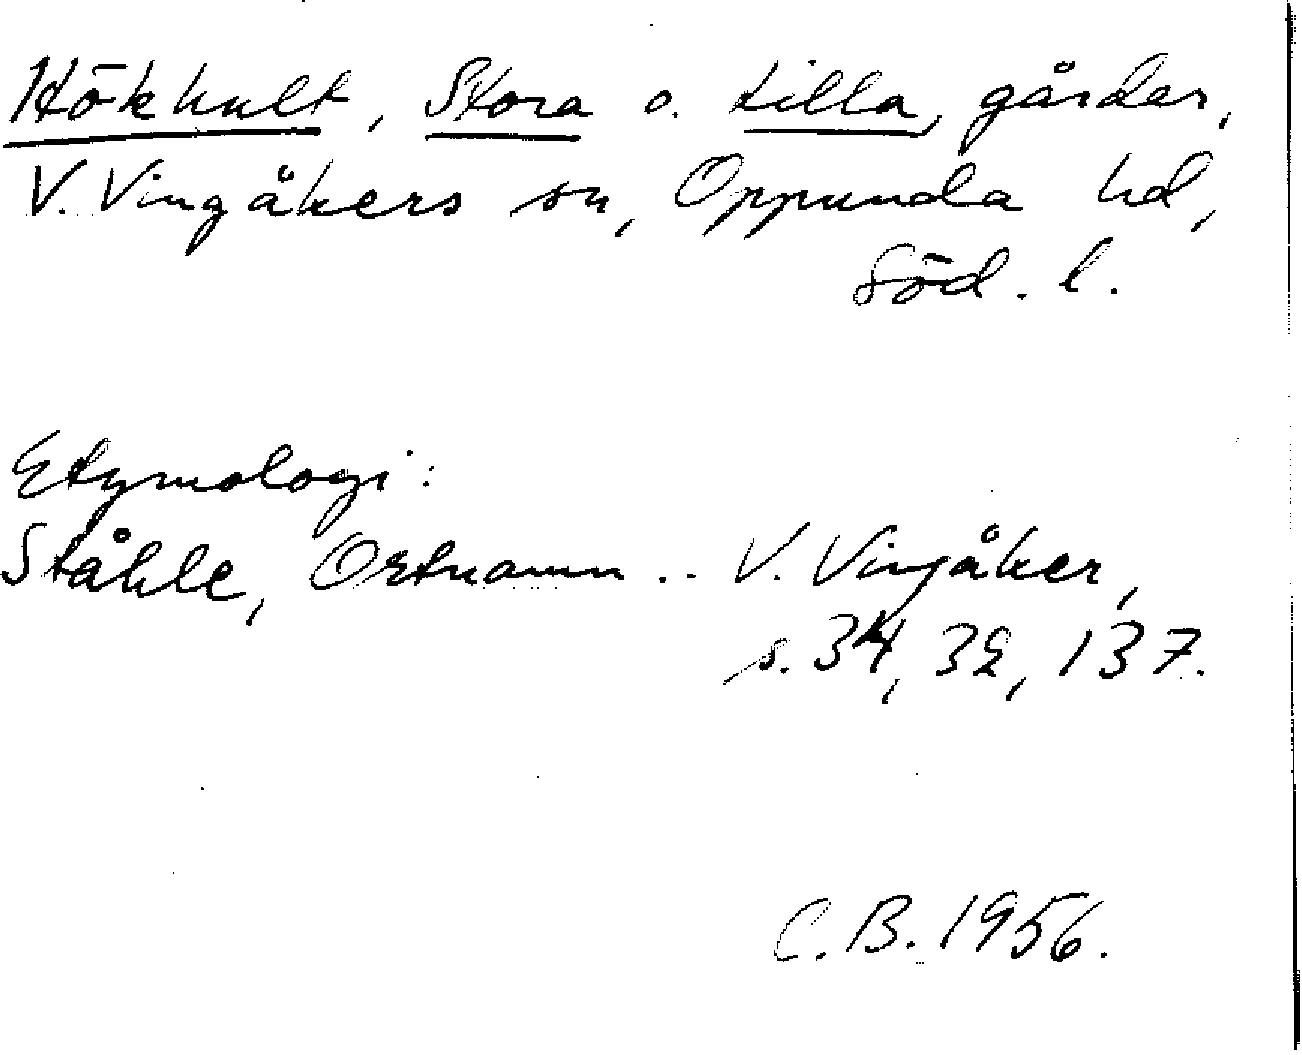 Hökhult, Stora o. Lilla, gårdar,
V. Vingåkers sn, Oppunda hd,
Söd. l.
Etymologi:
Ståhle, Ortnamn .. V. Vingåker,
s. 34, 39, 137.
C. B. 1956.